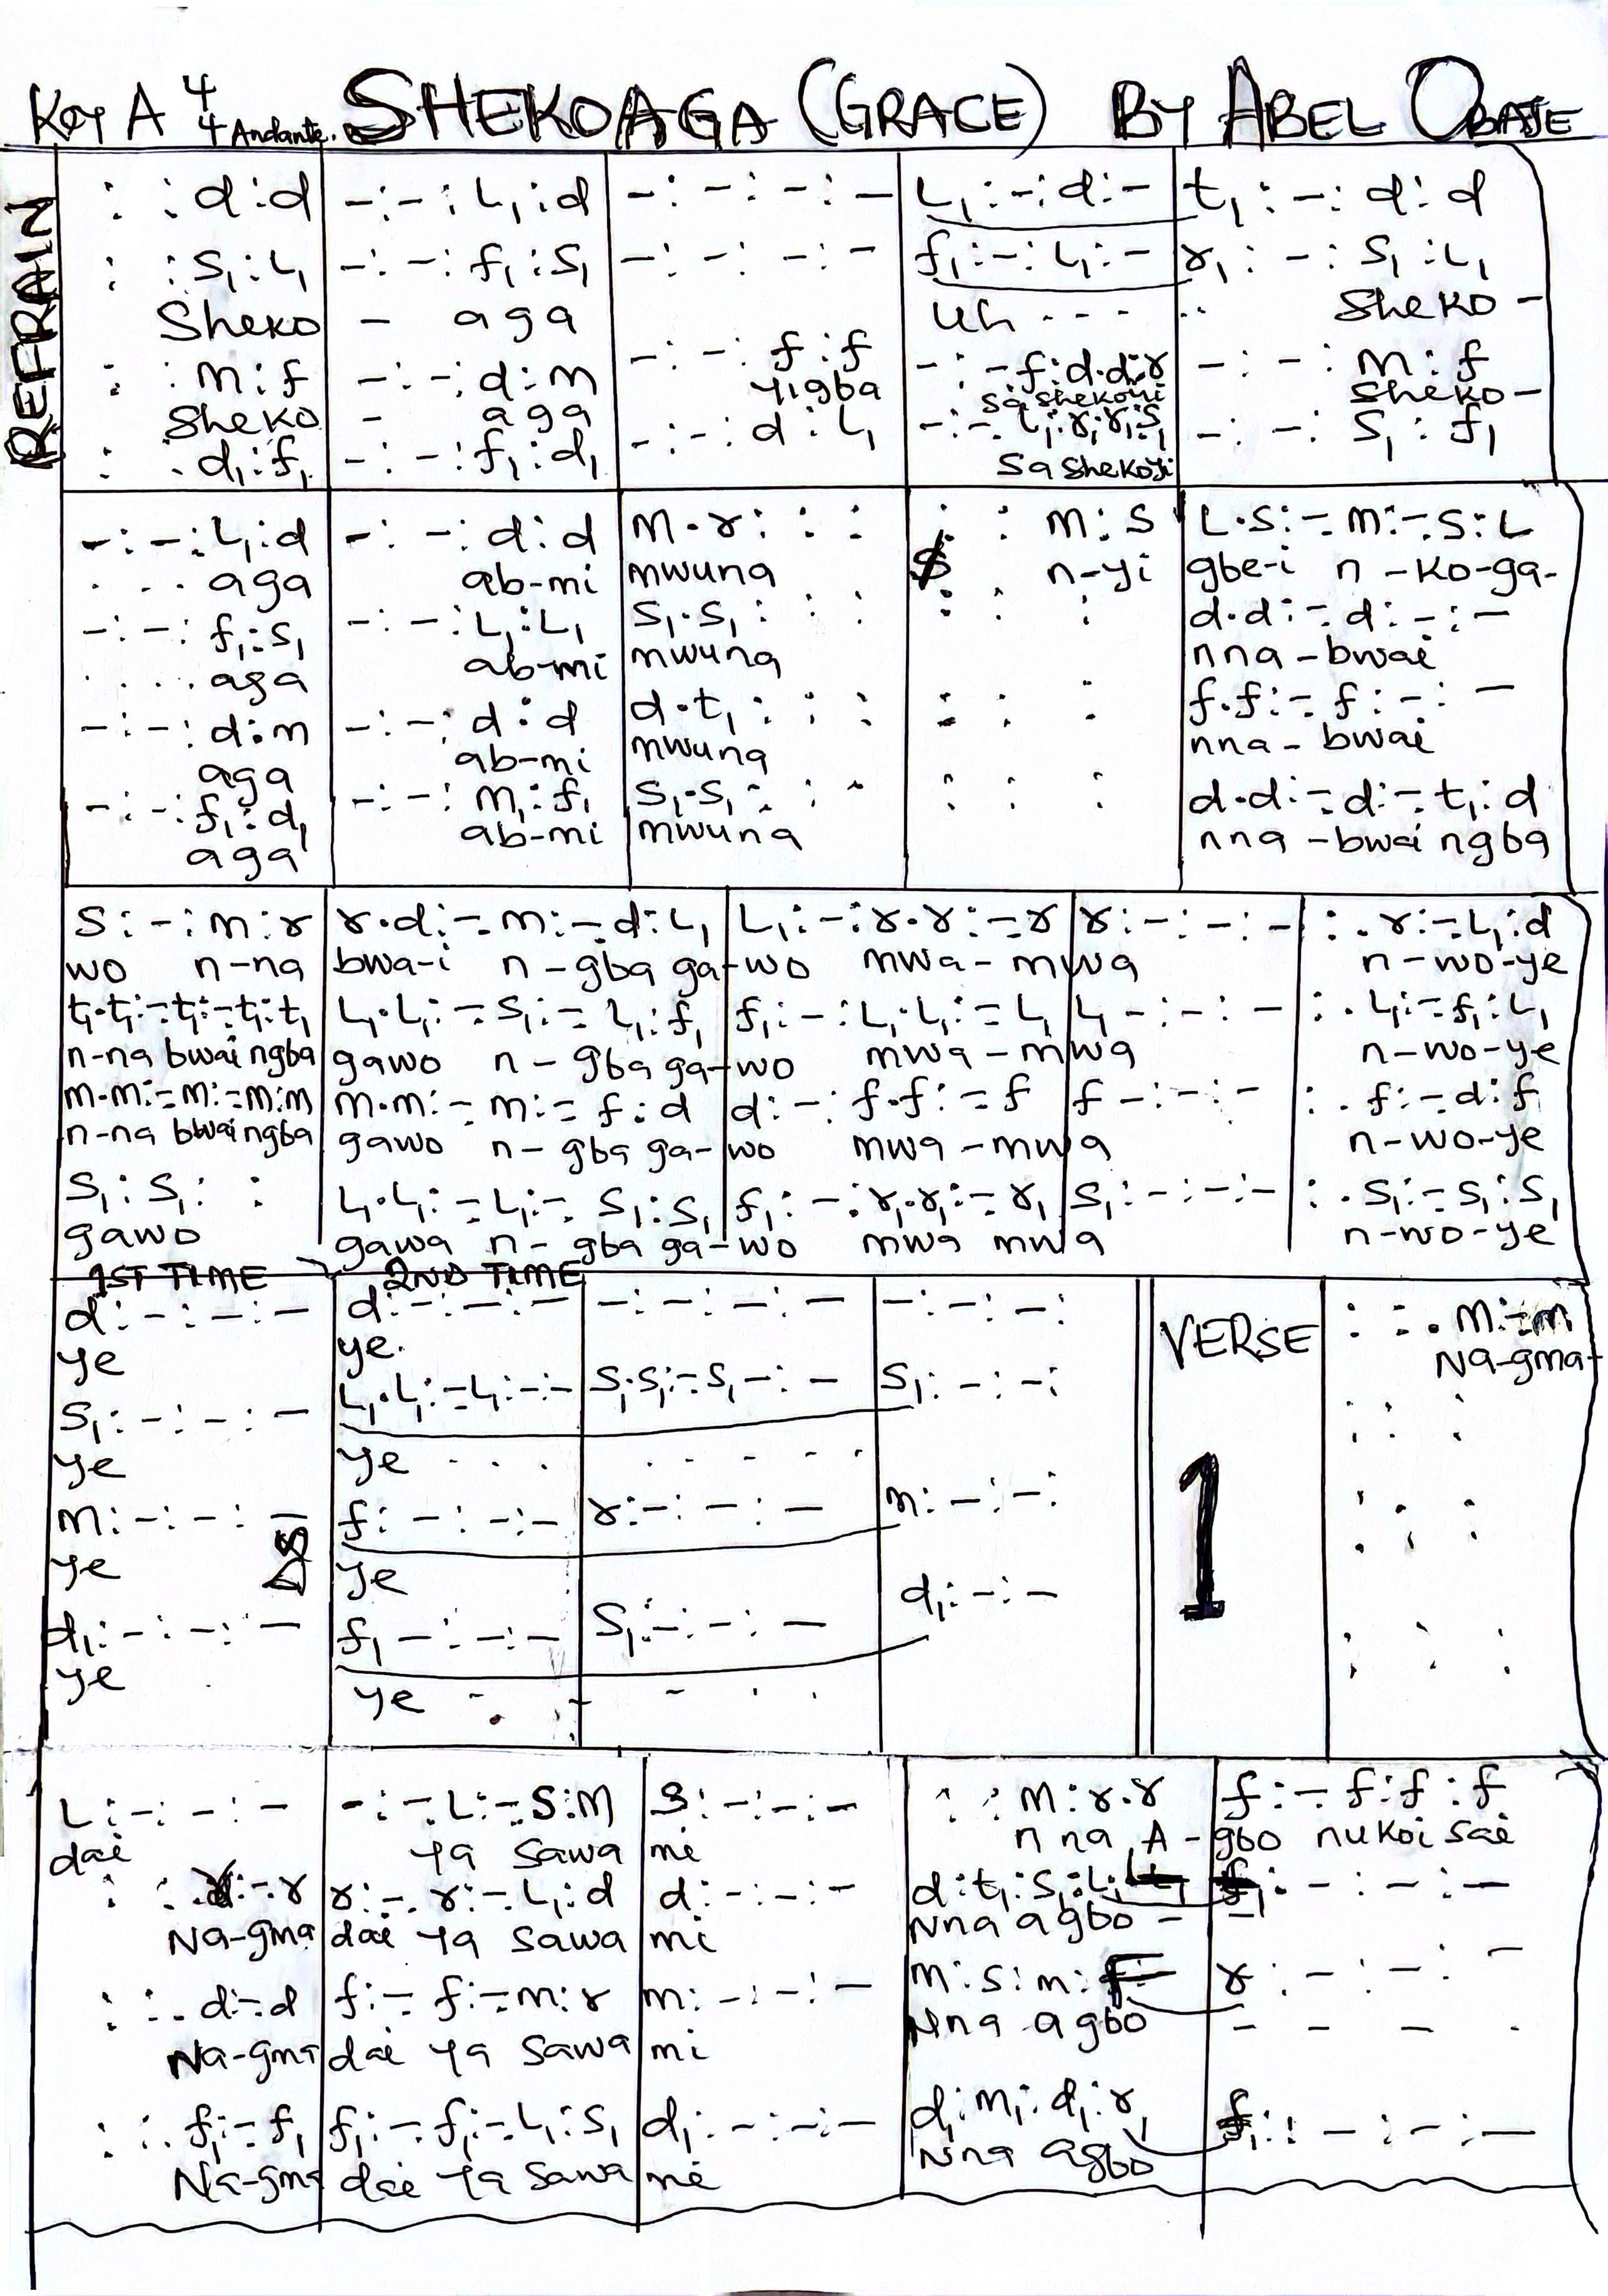 Key A 4/4 Andante. SHEKOAGA (GRACE) BY ABEL OBAJE
REFRAIN
: : d:d | -:-: L₁:d | -:-:-:- | L₁:-:d:- | t₁:-:d:d
: : S₁:L₁ | -:-: f₁:S₁ | -:-:-:- | f₁:-:L₁:- | r₁:-:S₁:L₁
Sheko | - aga | | Uh - - - | .. Sheko -
: : m:f | -:-: d:m | -:-: f:f | -:-f:d.d:r | -:-: m:f
Sheko | - aga | Yigba | sa shekoyi | Sheko -
: : d₁:f₁ | -:-: f₁:d₁ | -:-: d:L₁ | -:-.L₁:r₁.r₁:S₁ | -:-: S₁:f₁
Sa shekoyi
-:-: L₁:d | -:-: d:d | m.r: : : | : : m:S | L.S:-m:-S:L
... aga | ab-mi | mwuna | n-yi | gbe-i n-ko-ga-
-:-: f₁:S₁ | -:-: L₁:L₁ | S₁.S₁: : : | : : : | d.d:-d:-:-
.... aga | ab-mi | mwuna | | nna-bwai
-:-: d:m | -:-: d:d | d.t₁: : : | : : : | f.f:-f:-:-
aga | ab-mi | mwuna | | nna-bwai
-:-: f₁:d₁ | -:-: m₁:f₁ | S₁.S₁: : : | : : : | d.d:-d:-t₁:d
aga | ab-mi | mwuna | | nna-bwai ngba
S:-:m:r | r.d:-m:-d:L₁ | L₁:-:r.r:-r | r:-:-:- | :.r:-L₁:d
wo n-na | bwa-i n-gba ga- | wo mwa-m | wa | n-wo-ye
t₁.t₁:-t₁:-t₁:t₁ | L₁.L₁:-S₁:-L₁:f₁ | f₁:-:L₁.L₁:-L₁ | L₁-:-:- | :.L₁:-f₁:L₁
n-na bwai ngba | gawo n-gba ga- | wo mwa-m | wa | n-wo-ye
m.m:-m:-m:m | m.m:-m:-f:d | d:-:f.f:-f | f-:-:- | :.f:-d:f
n-na bwai ngba | gawo n-gba ga- | wo mwa-m | wa | n-wo-ye
S₁:S₁: : | L₁.L₁:-L₁:-S₁:S₁ | f₁:-:r₁.r₁:-r₁ | S₁:-:-:- | :.S₁:-S₁:S₁
gawo | gawa n-gba ga- | wo mwa m | wa | n-wo-ye
1ST TIME | 2ND TIME
d:-:-:- | d:-:-:- | -:-:-:- | -:-:-: | VERSE | : :.m:-m
ye | ye. | | | | Na-gma-
S₁:-:-:- | L₁.L₁:-L₁:-:- | S₁.S₁:-S₁-:- | S₁:-:-: | | : : :
ye | ye . . . | . . . . .
m:-:-:- | f:-:-:- | r:-:-:- | m:-:-: | 1 | : : :
ye DS | ye
d₁:-:-:- | f₁-:-:- | S₁:-:-:- | d₁:-:- | | : : :
ye | ye - - - . .
L:-:-:- | -:-L:-S:m | S:-:-:- | : : m:r.r | f:-f:f:f
dai | Ya sawa | mi | n na A- | gbo nukoi sai
: :.r:-r | r:-r:-L₁:d | d:-:-:- | d:t₁:S₁:L₁ | f₁:-:-:-
Na-gma | dai Ya sawa | mi | Nna agbo - | -
: :.d:-d | f:-f:-m:r | m:-:-:- | m:s:m:f | r:-:-:-
Na-gma | dai Ya sawa | mi | Nna agbo | - - - .
: :.f₁:-f₁ | f₁:-f₁:-L₁:S₁ | d₁:-:-:- | d₁:m₁:d₁:r₁ | f₁:-:-:-
Na-gma | dai Ya sawa | mi | Nna agbo